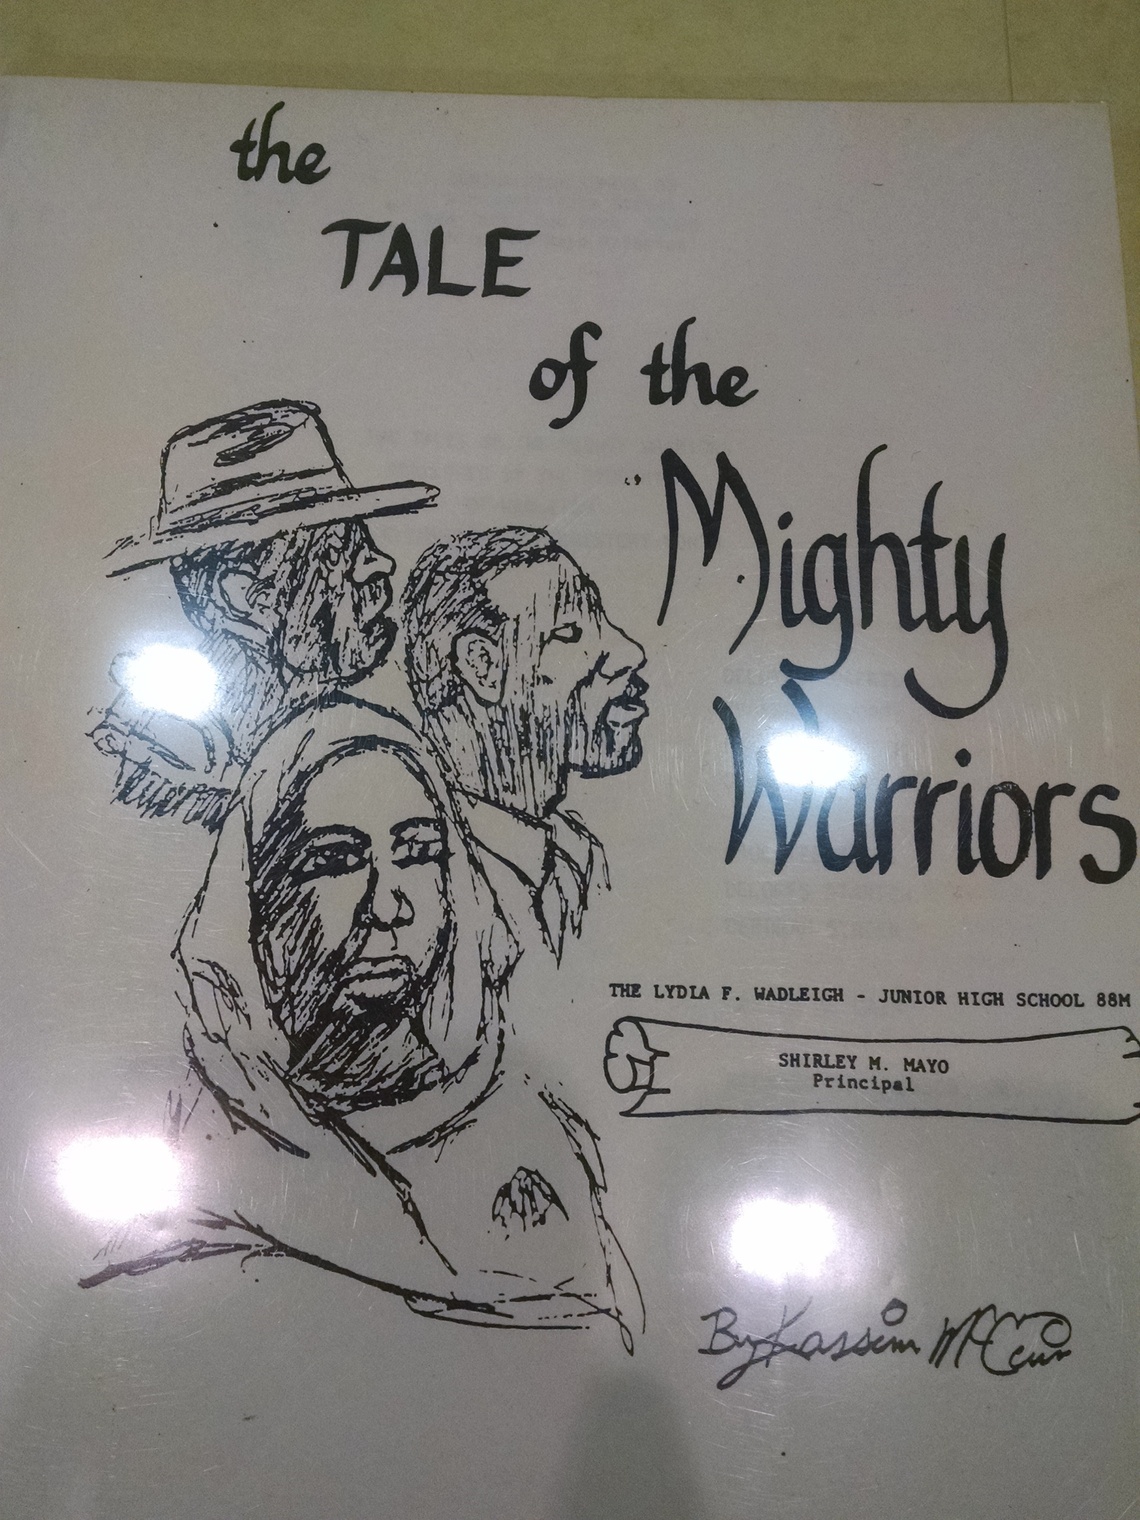 the
TALE
of the
Mighty
Warriors
THE LYDIA F. WADLEIGH - JUNIOR HIGH SCHOOL 88M
SHIRLEY M. MAYO
Principal
By Kassim